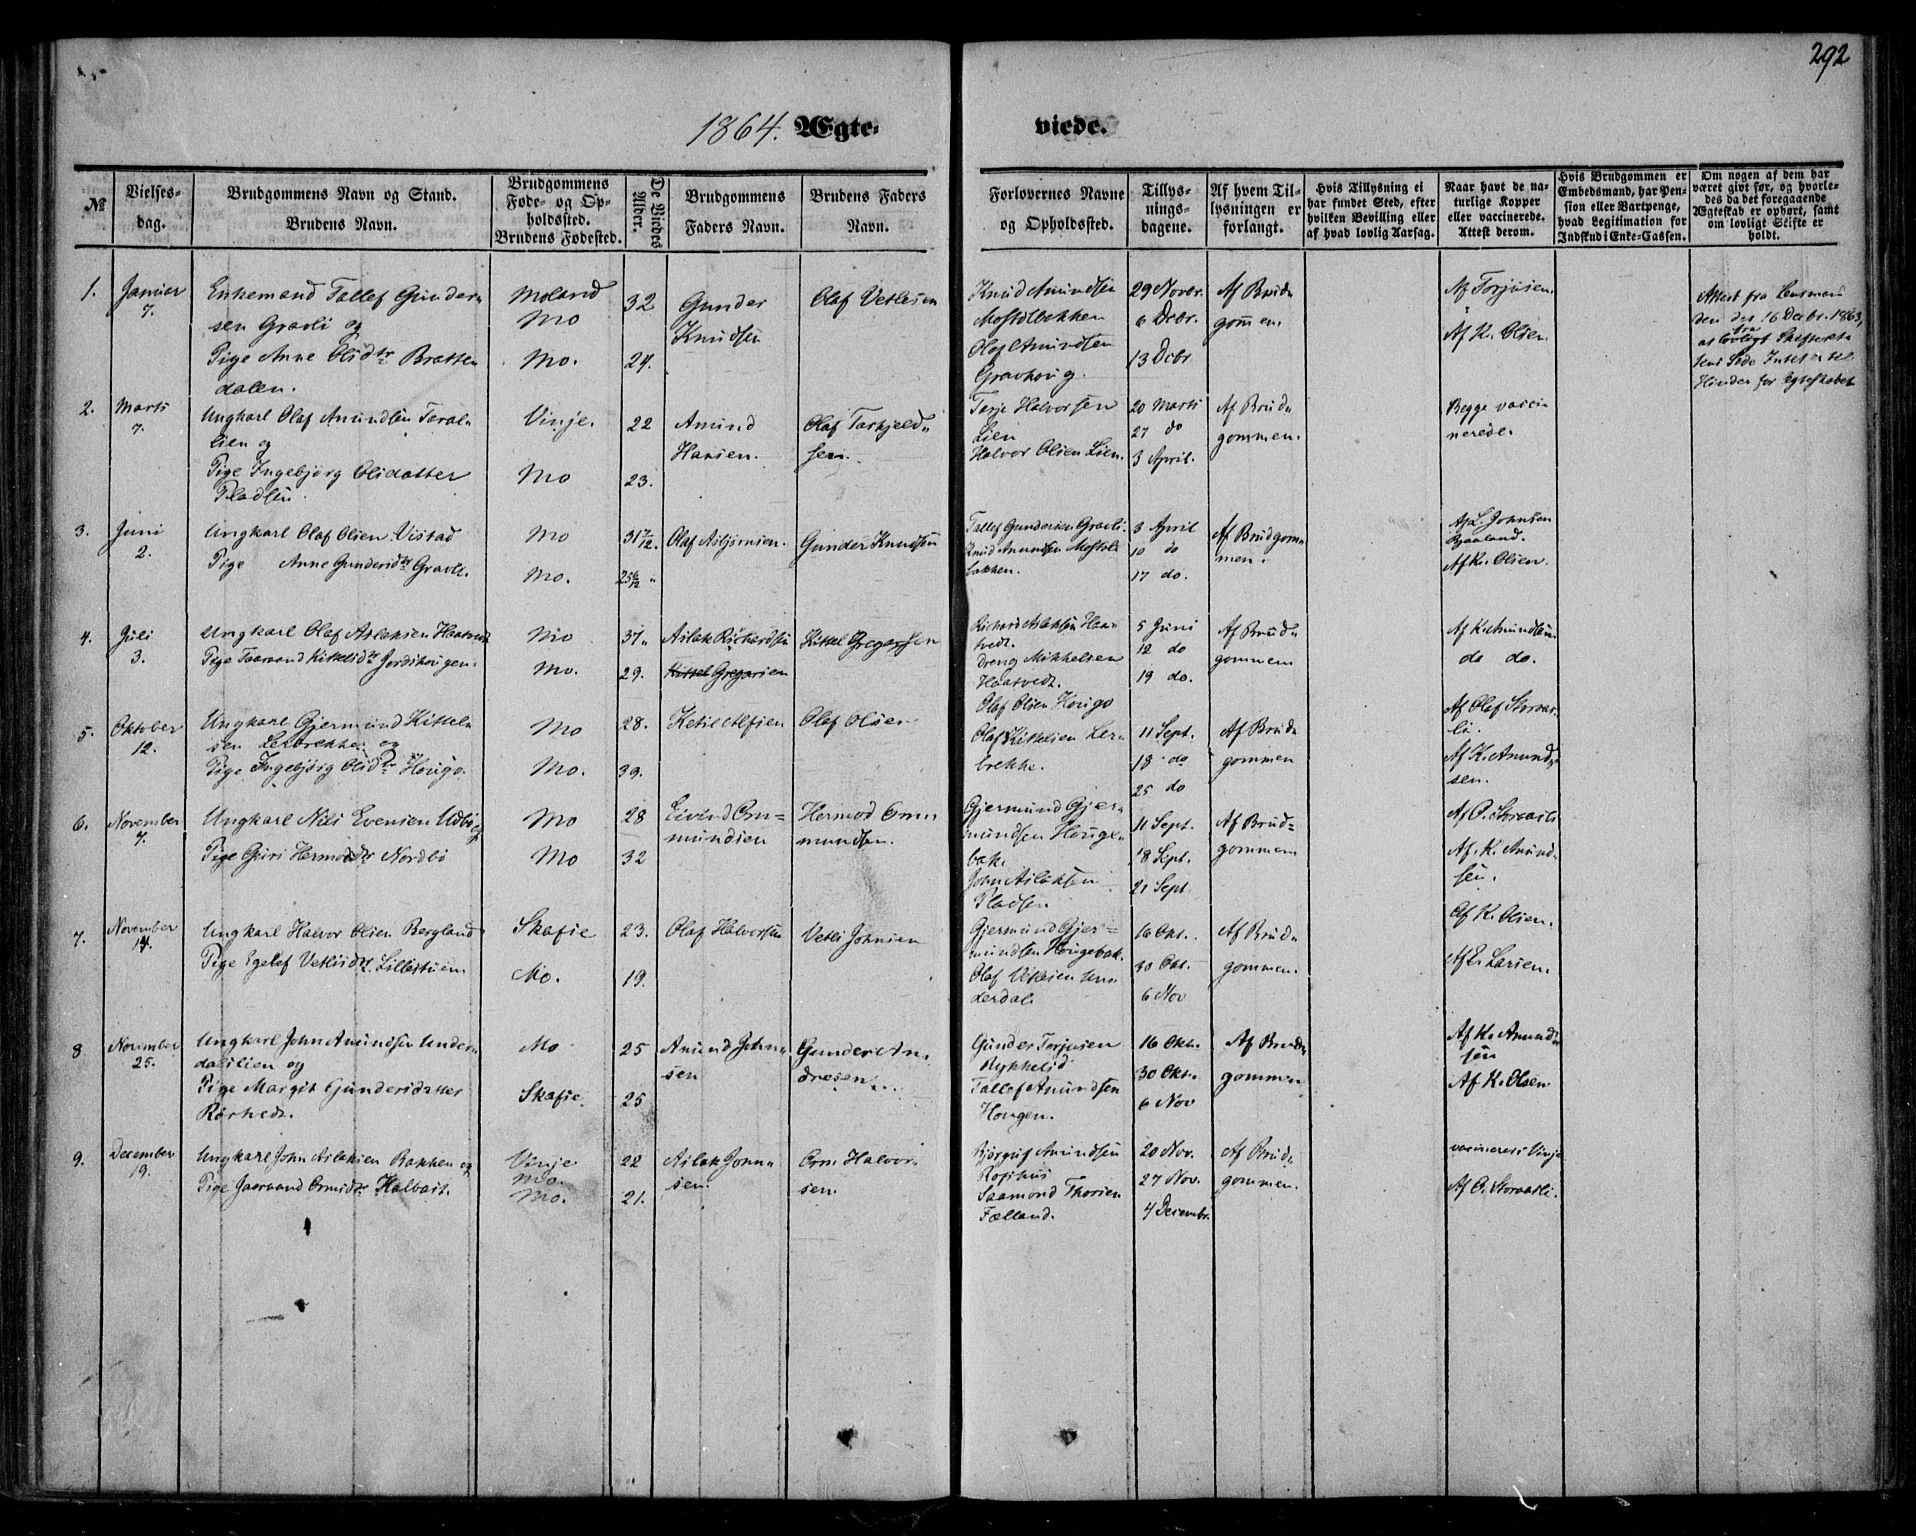 292
1864. Ægte- viede.
№
Vielses-
dag.
Brudgommens Navn og Stand.
Brudens Navn.
Brudgommens
Føde- og Op-
holdssted.
Brudens Fødested.
De Viedes
Alder.
Brudgommens
Faders Navn.
Brudens Faders
Navn.
Forlovernes Navne
og Opholdssted.
Tillys-
nings-
dagene.
Af hvem Til-
lysningen er
forlangt.
Hvis Tillysning ei
har fundet Sted, efter
hvilken Bevilling eller
af hvad lovlig Aarsag.
Naar havt de na-
turlige Kopper
eller vaccinerede.
Attest derom.
Hvis Brudgommen er
Embedsmand, har Pen-
sion eller Vartpenge,
hvad Legitimation for
Indskud i Enke-Cassen.
Om nogen af dem har
været givt før, og hvorle-
des da det foregaaende
Ægteskab er ophørt, samt
om lovligt Skifte er
holdt.
1.
Januar
7.
Enkemand Tallef Gunder-
sen Gravli og
Pige Anne Olsdtr Bratten
dalen.
Moland
Mo
Mo.
32
24.
Gunder
Knudsen
Olaf Vetlesen
Knud Amundsen
Mostølbakken
Olaf Amundsen
Gravhoug.
29 Novbr.
6 Debr.
13 Debr
Af Brud-
gommen
Af Torjusen
Af K. Olsen
Attest fra Lensman
den der 16 Decbr. 1863,
at fra lovligt Skifterets
Side Intet er til
Hinder for Egteskabet
2.
Marts
7.
Ungkarl Olaf Amundsen
lien og
Pige Ingebjørg Olsdatter
Pladsen.
Vinje.
Mo
22
23.
Amund
Hansen.
Olaf Tarkjeld-
sen.
Terje Halvorsen
Lien
Halvor Olsen Lien.
20 Marts
27 do
3 April.
Af Brud-
gommen.
Begge vacci-
nerede.
3.
Juni
2.
Ungkarl Olaf Olsen Vistad
Pige Anne Gundersdtr Gravli.
Mo
Mo.
31 7/12.
25 6/12 "
Olaf Asbjørnsen.
Gunder Knudsen
Tallef Gundersen Gravli.
Knud Amundsen Mostøl-
bakken.
3 April
10 do
17 do.
Af Brudgom-
men.
Af L. Johnsen
Bjaaland.
Af K. Olsen.
4.
Juli
3.
Ungkarl Olaf Aslaksen Haatvedt
Pige Taarand Kittelsdtr Jordshougen.
Mo
Mo.
37 "
29.
Aslak Richardsen
Kittel Gregarsen
Kittel Gregersen
Richard Aslaksen Haa-
tvedt.
Dreng Mikkelsen
Haatvedt.
5 Juni
12 do
19 do.
Af Brud-
gommen
Af K. Amundsen
do do.
5.
Oktober
12.
Ungkarl Gjermund Kittel-
sen Lerbrekke og
Pige Ingebjørg Olsdtr Hougo.
Mo
Mo.
28.
39.
Ketil Alfsen
Olaf Olsen
Olaf Olsen Hougo
Olaf Kittelsen Ler-
brekke.
11 Sept.
18 do
25 do
Af Brud-
gommen
Af Olaf Storaas-
li.
Af K. Amund-
sen.
6.
November
7.
Ungkarl Nils Evensen Udbø og
Pige Guri Hermodsdtr Nordbø
Mo
Mo
28
32
Eivind Orm-
mundsen
Hermod Orm-
mundsen.
Gjermund Gjer-
mundsen Houge-
bak.
John Aslaksen
Pladsen
11 Sept.
18 Sept.
21 Sept
Af Brud-
gommen
Af O. Storaasli
Af. K. Amund-
sen.
7.
November
14.
Ungkarl Halvor Olsen Bergland
Pige Egelef Vetlesdtr. Lillestuen.
Skafse
Mo.
23.
19.
Olaf Halvorsen
Vetle Johnsen
Gjermund Gjer-
mundsen Hougebak.
Olaf Vetlesen Un-
derdal.
16 Okt.
30 Okt.
6 Nov
Af Brud-
gommen.
Af K. Olsen.
Af E. Larsen.
8
November
25.
Ungkarl John Amundsen Under-
dalslien og
Pige Margit Gundersdatter
Rørtvedt.
Mo
Skafse.
25
25
Amund John-
sen
Gunder An-
dresen
Gunder Torjusen
Nykkelid
Tallef Amundsen
Hougen.
16 Okt.
30 Okt.
6 Nov
Af Brud-
gommen
Af K. Amund-
sen
Af K. Olsen
9.
December
19.
Ungkarl John Aslaksen Bakken og
Pige Jaarand Ormsdtr. Kalbast.
Vinje
Mo
Mo.
22
21.
Aslak John-
sen.
Orm Halvor-
sen.
Bjørguf Amundsen
Rosthus
Saamond Thorsen
Fælland.
20 Nov.
27 Nov.
4 Decembr.
Af Brud-
gommen.
vaccineret i Vinje
Af O. Storaasli.